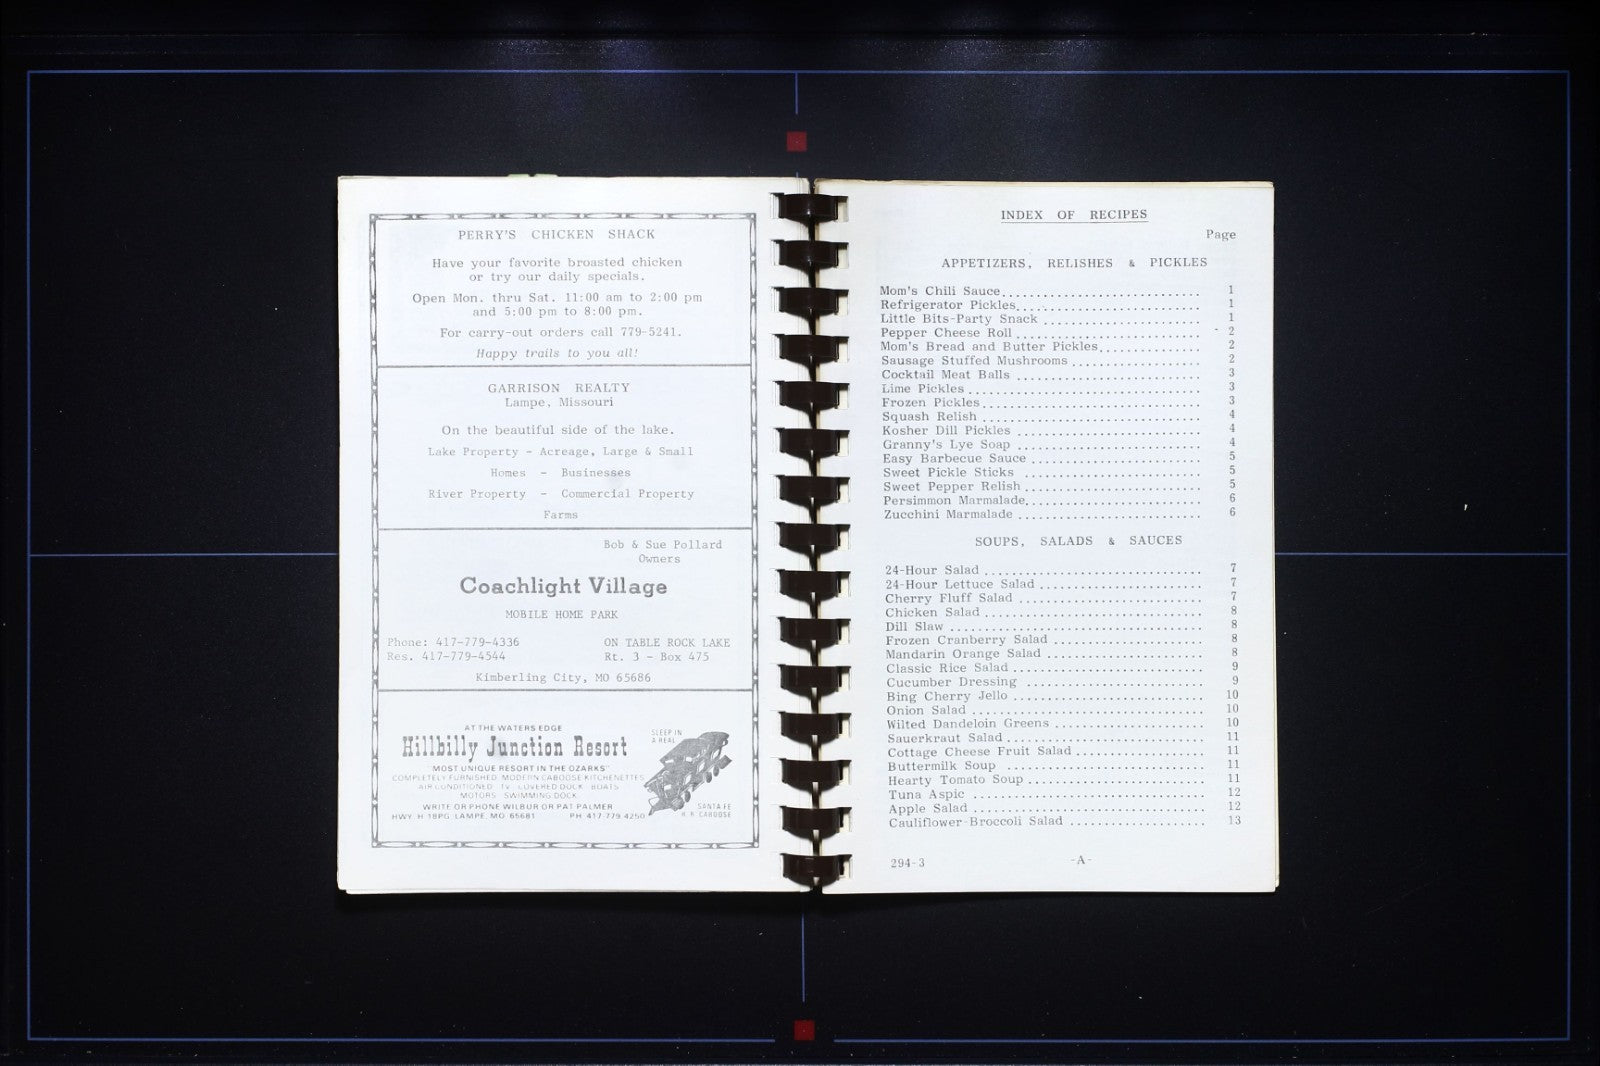 PERRY'S CHICKEN SHACK
Have your favorite broasted chicken
or try our daily specials.
Open Mon. thru Sat. 11:00 am to 2:00 pm
and 5:00 pm to 8:00 pm.
For carry-out orders call 779-5241.
Happy trails to you all!
GARRISON REALTY
Lampe, Missouri
On the beautiful side of the lake.
Lake Property - Acreage, Large & Small
Homes - Businesses
River Property - Commercial Property
Farms
Bob & Sue Pollard
Owners
Coachlight Village
MOBILE HOME PARK
Phone: 417-779-4336 ON TABLE ROCK LAKE
Res. 417-779-4544 Rt. 3 - Box 475
Kimberling City, MO 65686
AT THE WATERS EDGE
Hillbilly Junction Resort
"MOST UNIQUE RESORT IN THE OZARKS"
COMPLETELY FURNISHED MODERN CABOOSE KITCHENETTES
AIR CONDITIONED TV COVERED DOCK BOATS
MOTORS SWIMMING DOCK
WRITE OR PHONE WILBUR OR PAT PALMER
HWY H 18PG LAMPE, MO 65681 PH 417 779 4250
SLEEP IN
A REAL
SANTA FE
R. R. CABOOSE
INDEX OF RECIPES
Page
APPETIZERS, RELISHES & PICKLES
Mom's Chili Sauce 1
Refrigerator Pickles 1
Little Bits-Party Snack 1
Pepper Cheese Roll 2
Mom's Bread and Butter Pickles 2
Sausage Stuffed Mushrooms 2
Cocktail Meat Balls 3
Lime Pickles 3
Frozen Pickles 3
Squash Relish 4
Kosher Dill Pickles 4
Granny's Lye Soap 4
Easy Barbecue Sauce 5
Sweet Pickle Sticks 5
Sweet Pepper Relish 5
Persimmon Marmalade 6
Zucchini Marmalade 6
SOUPS, SALADS & SAUCES
24-Hour Salad 7
24-Hour Lettuce Salad 7
Cherry Fluff Salad 7
Chicken Salad 8
Dill Slaw 8
Frozen Cranberry Salad 8
Mandarin Orange Salad 8
Classic Rice Salad 9
Cucumber Dressing 9
Bing Cherry Jello 10
Onion Salad 10
Wilted Dandeloin Greens 10
Sauerkraut Salad 11
Cottage Cheese Fruit Salad 11
Buttermilk Soup 11
Hearty Tomato Soup 11
Tuna Aspic 12
Apple Salad 12
Cauliflower-Broccoli Salad 13
294-3 -A-